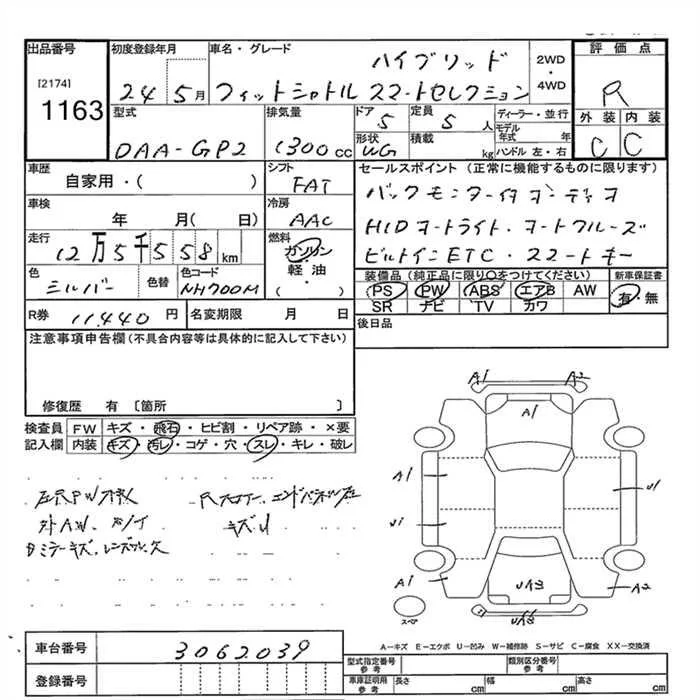 出品番号 初度登録年月 車名・グレード 評価点
[2174] ハイブリッド 2WD
1163 24 5月 フィットシャトル スマートセレクション ・ 4WD R
型式 排気量 ドア 定員 ディーラー・並行 外装 内装
DAA-GP2 1300cc 5 5人 モデル年式 年 C C
形状 積載
WG kg ハンドル 左・右
車歴 シフト セールスポイント (正常に機能するものに限ります)
自家用・( ) FAT バックモニター付オーディオ
車検 冷房
年 月(日) AAC HIDオートライト・オートクルーズ
走行 燃料
12万5千558km ガソリン・ ビルトインETC・スマートキー
色 色替 色コード 軽油 装備品(純正品に限り○をつけてください) 新車保証書
シルバー NH700M ( ) PS PW ABS エアB AW 有・無
SR ナビ TV カワ
R券 11,440円 名変期限 月 日 後日品
注意事項申告欄(不具合内容等は具体的に記入して下さい)
修復歴 有 [箇所 ]
検査員 FW キズ・飛石・ヒビ割・リペア跡・×要
記入欄 内装 キズ・汚レ・コゲ・穴・スレ・キレ・破レ
A1 A2
A1
A1 U1
U1
A1 A2
UA3
スペア
外AW、ガソイ キズU
Dミラーキズ、レンズカバー欠
A-キズ E-エクボ U-凹み W-補修跡 S-サビ C-腐食 XX-交換済
車台番号 3062039
型式指定番号 参考 類別区分番号 参考
登録番号 車庫証明用 参考 長さ cm 幅 cm 高さ cm